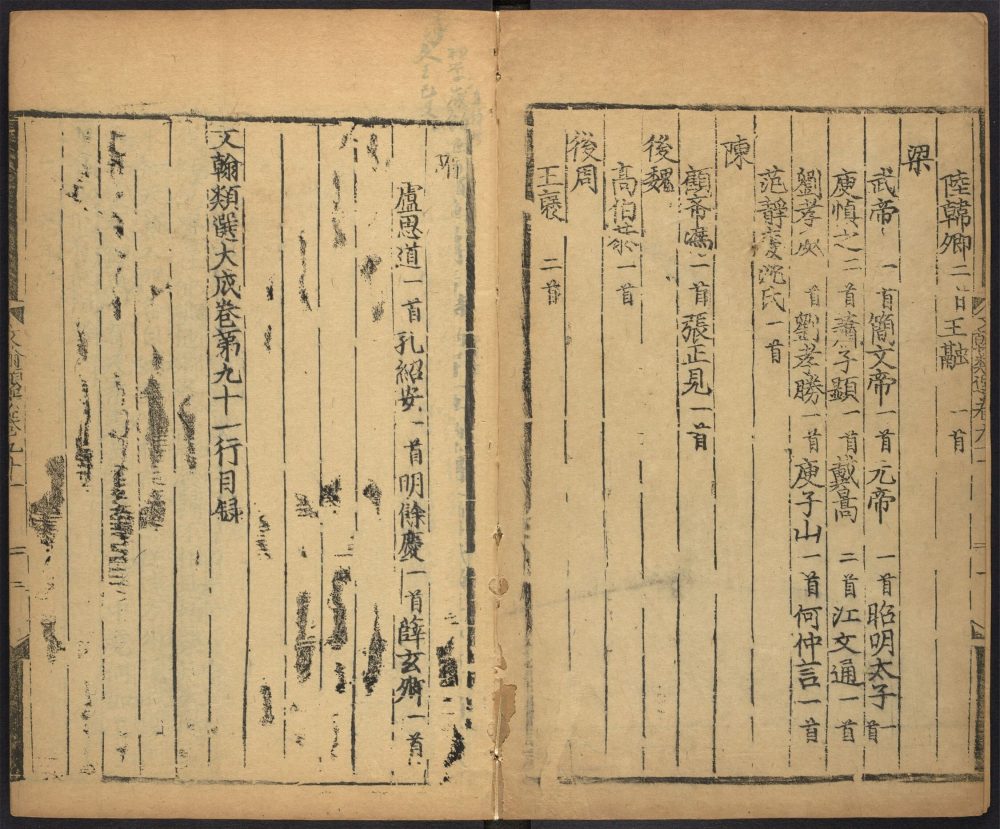 陸韓卿二首王融一首
梁
武帝一首簡文帝一首元帝一首昭明太子一首
庾慎之二首蕭子顯一首戴暠二首江文通一首
劉孝 首劉孝勝一首庾子山一首何仲言一首
范靜妻沈氏一首
陳
顧希馮一首張正見一首
後魏
高伯恭一首
後周
王褒二首
隋
盧思道一首孔紹安一首明餘慶一首薛玄卿一首
文翰類選大成卷第九十一行目録